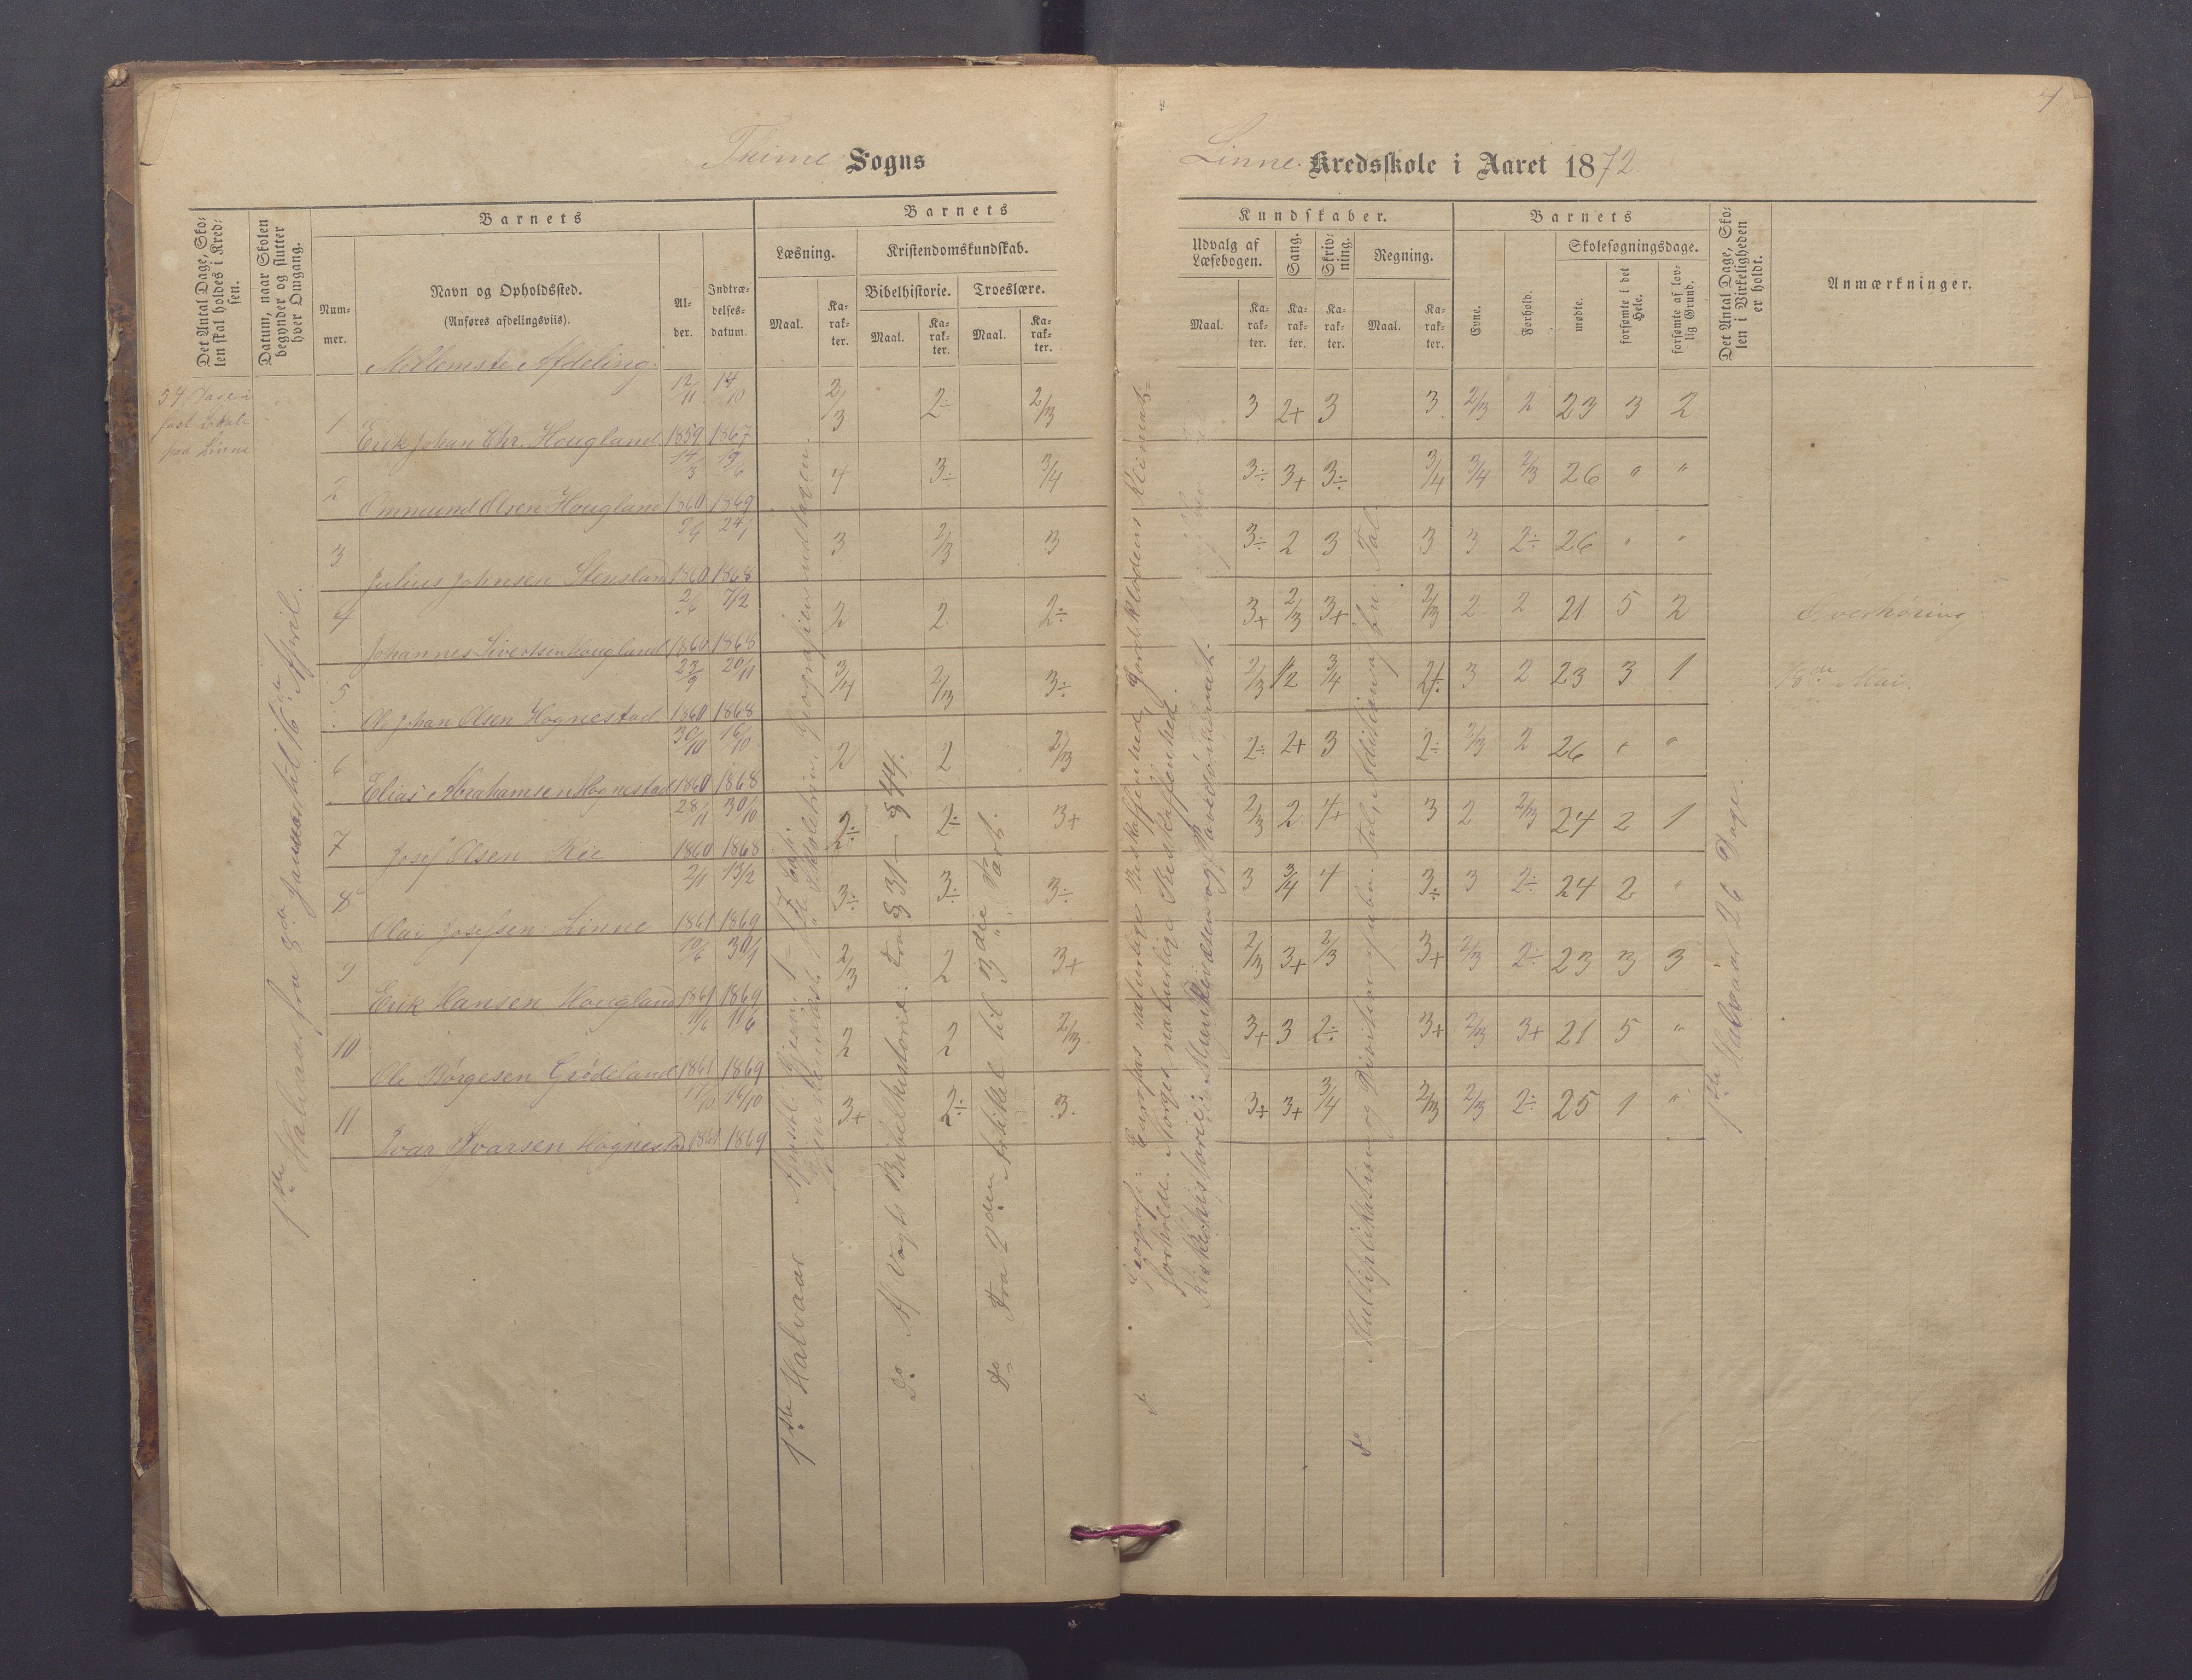 Thime Sogns
Linne Kredsskole i Aaret 1872.
Det Antal Dage, Skolen skal holdes i Kredsen.
Datum, naar Skolen begynder og slutter hver Omgang.
Barnets
Nummer.
Navn og Opholdssted.
(Anføres afdelingsviis).
Alder.
Indtrædelsesdatum.
Barnets
Læsning.
Maal.
Karakter.
Kristendomskundskab.
Bibelhistorie.
Maal.
Karakter.
Troeslære.
Maal.
Karakter.
Kundskaber.
Udvalg af Læsebogen.
Maal.
Karakter.
Sang.
Karakter.
Skrivning.
Karakter.
Regning.
Maal.
Karakter.
Barnets
Evne.
Forhold.
Skolesøgningsdage.
mødte.
forsømte i det Hele.
forsømte af lovlig Grund.
Det Antal Dage, Skolen i Virkeligheden er holdt.
Anmærkninger.
Mellemste Afdeling.
54 Dage i
fast Lokale
paa Linne
1ste Halvaar fra 3die Januar til 16de April.
1 Erik Johan Chr. Hougland 12/11 1859 14/10 1867 2/3 2÷ 2/3 3 2+ 3 3 2/3 2 23 3 2
2 Ommund Olsen Hougland 14/3 1860 1869 4 3÷ 3/4 3÷ 3+ 3÷ 3/4 3/4 2/3 26 " "
3 Julius Johnsen Stensland 1860 24/1 1868 3 2/3 3 3÷ 2 3 3 3 2÷ 26 " "
4 Johannes Sivertsen Hougland 2/6 1860 7/2 1868 2 2 2÷ 3+ 2/3 3+ 2/3 2 2 21 5 2
5 Ole Johan Olsen Hognestad 23/9 1860 20/11 1868 3/4 2/3 3÷ 2/3 3/4 3 2 23 3 1
6 Elias Abrahamsen Hognestad 30/10 1860 16/10 1868 2 2 2/3 2÷ 2+ 3 2÷ 2/3 2 26 " "
7 Josef Olsen Rie 28/11 1860 30/10 1868 2÷ 2÷ 3+ 2/3 2 4+ 3 2 2/3 24 2 1
8 Olai Josefsen Linne 2/1 1861 13/2 1869 3÷ 3÷ 3÷ 3 3/4 4 3÷ 3 2÷ 24 2 "
9 Erik Hansen Hougland 10/6 1861 30/1 1869 2/3 2 3+ 2/3 3+ 2/3 3+ 2/3 2÷ 23 3 3
10 Ole Børgesen Grødeland 1861 11/6 1869 2 2 2/3 3+ 3 2÷ 3+ 2/3 3+ 21 5 "
11 Ivar Ivarsen Hognestad 1861 14/10 1869 3+ 2÷ 3 3+ 3+ 3/4 2/3 2/3 2÷ 25 1 "
1ste Halvaar
Do Af Vogts Bibelhistorie: Fra § 31 – § 44.
Do Fra 2den Artikel til 3die Part.
Geografi: Europas naturlige Beskaffenhed, Jordklodens Klimat-
forholde. Norges naturlige Beskaffenhed.
Kirkehistorie: Munkevæsen og Pavedømmet.
Do Multiplikation og Division af ube. Tal. Addition af fri Tal.
1ste Halvaar 26 Dage.
Overhøring
18de Mai.